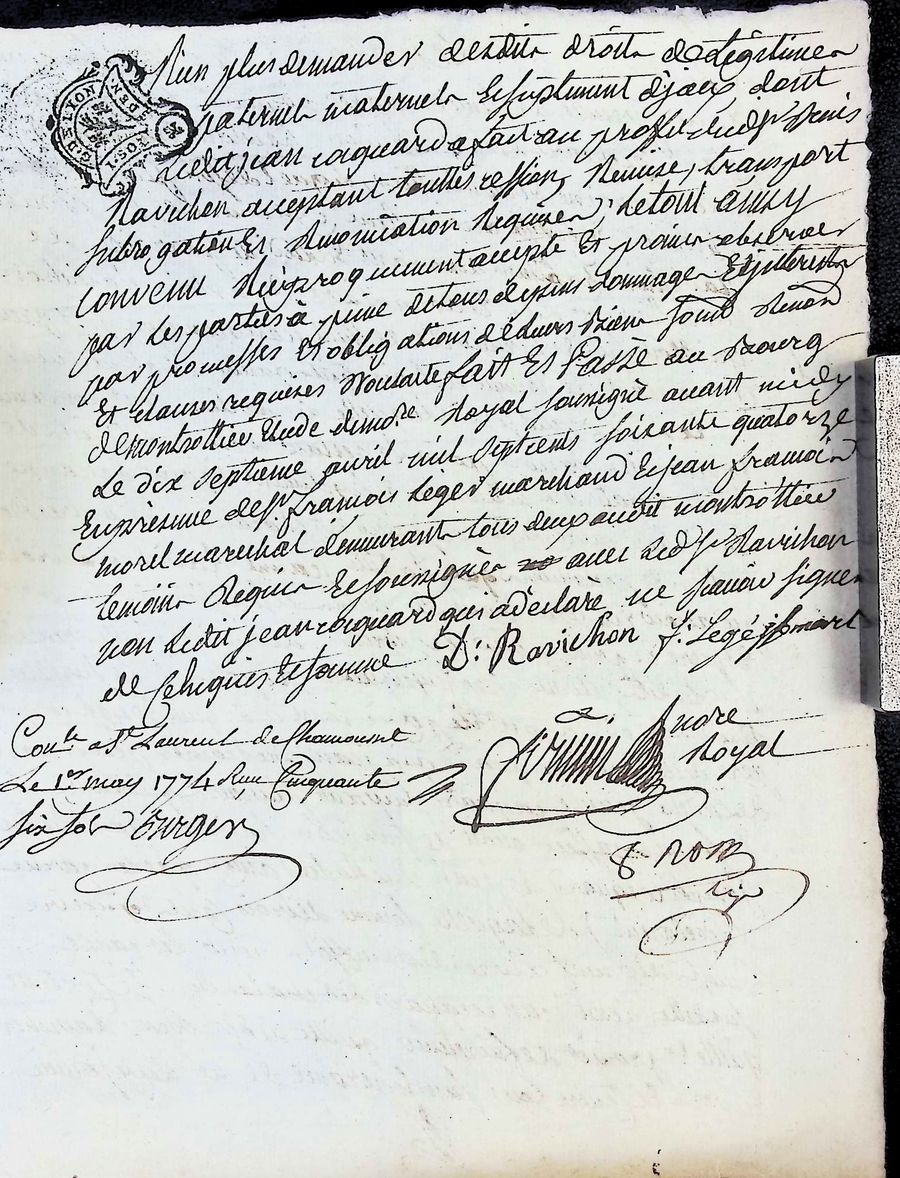 G. DE LYON
Rien plus demander desdits droits de Légitimes
paternel maternels et suplement d'jceux dont
Ledit jean coquard a fait au proffit dudt Sr denis
Ravichon acceptant touttes cession, Remise, transport
subrogation Et Renonciation Requises, Le tout ainsy
convenu Réciproquement accepté Et promis observer
par Les parties à peine de tous depens dommages Et jnterests
par promesses Et obligations de Leurs Biens soumis Renon
Et clauses requises Voulante fait Et Passé au Bourg
de montrottier Etude du nore Royal soussigné avant midy
Le dix septieme avril mil sept cents soixante quatorze
En presence de Sr francois Leger marchand Et jean francois
morel marechal demeurants tous deux audit montrottier
temoins Requis Et soussignés avec Ledt Sr Ravichon
non Ledit jean coquard qui a declaré ne savoir signer
de Ce Enquis Et sommé D: Ravichon f. Legé
Conlé a St Laurent de Chamousset
Le 1er may 1774 Reçu Cinquante
six sols
nore
Royal